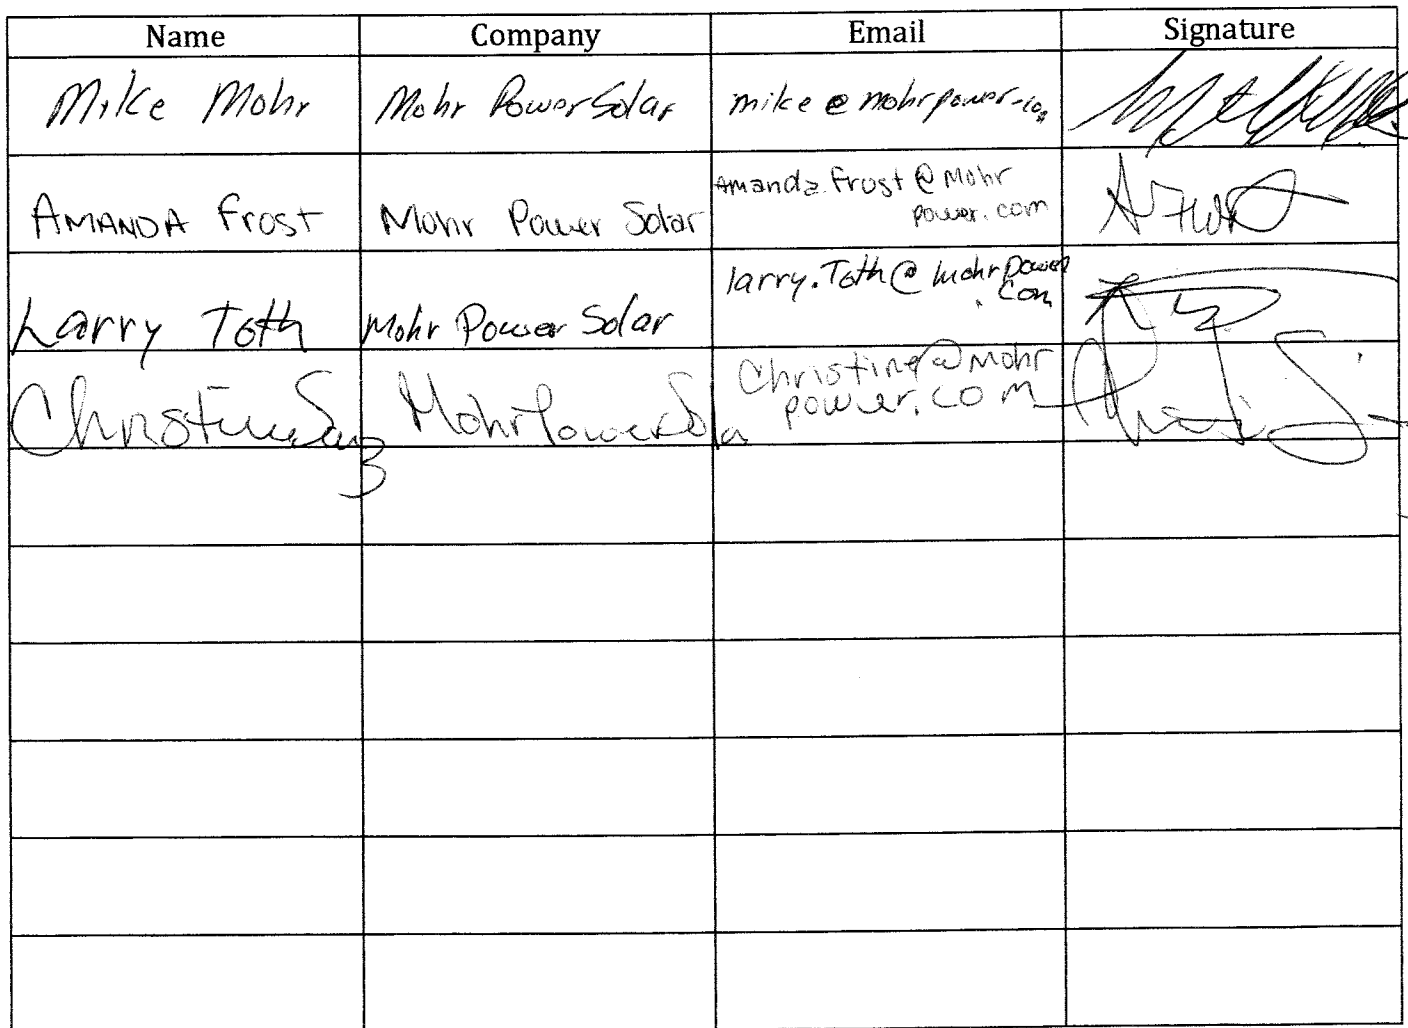 Name Company Email Signature
Mike Mohr Mohr Power Solar mike@mohrpower.com
AMANDA Frost Mohr Power Solar Amanda.Frost@Mohr
power.com
Larry Toth Mohr Power Solar larry.Toth@mohrpower
.com
Christine Sanz Mohr Power Sola Christine@Mohr
power.com